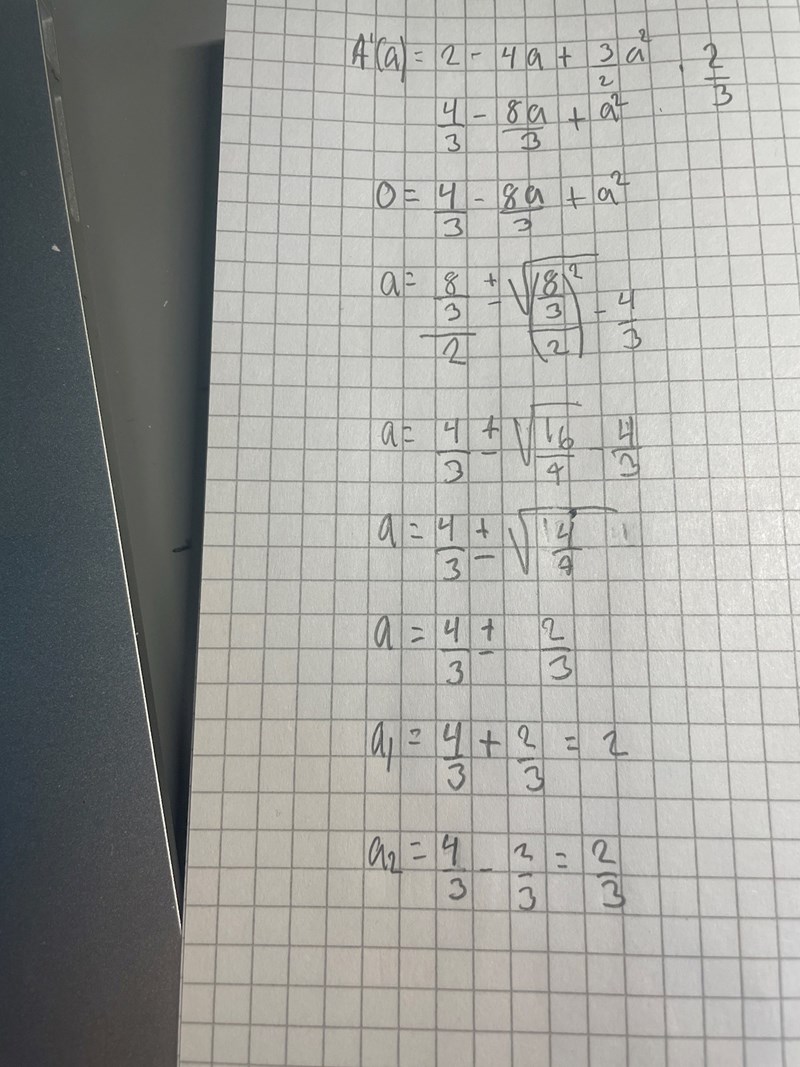 A'(a) = 2 - 4a + 3/2 a² · 2/3
4/3 - 8a/3 + a²
0 = 4/3 - 8a/3 + a²
a = (8/3)/2 ± √((8/3)/2)² - 4/3
a = 4/3 ± √16/9 - 4/3
a = 4/3 ± √4/9
a = 4/3 ± 2/3
a₁ = 4/3 + 2/3 = 2
a₂ = 4/3 - 2/3 = 2/3